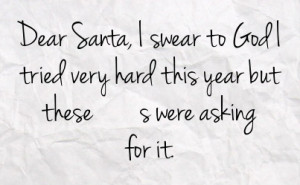 Dear Santa, I swear to God I
tried very hard this year but
these s were asking
for it.